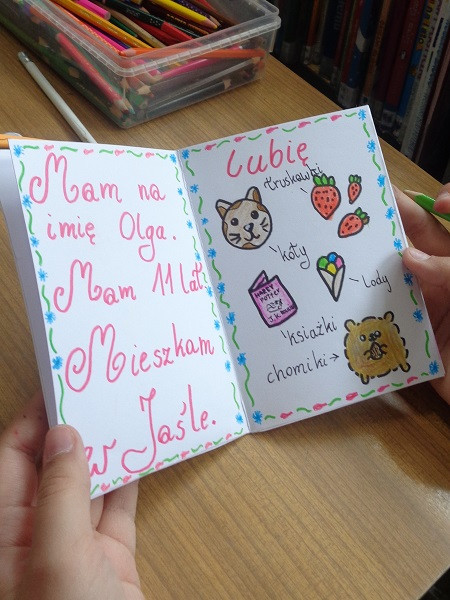 Mam na
imię Olga.
Mam 11 lat.
Mieszkam
w Jaśle.
Lubię
truskawki
koty
lody
HARRY
POTTER
J.K.
książki
chomiki